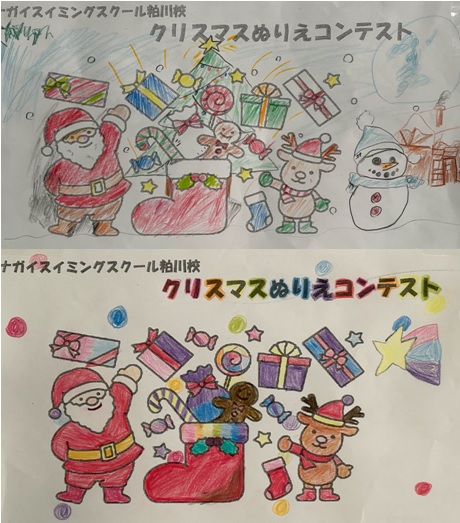 ナガイスイミングスクール粕川校
クリスマスぬりえコンテスト
ナガイスイミングスクール粕川校
クリスマスぬりえコンテスト